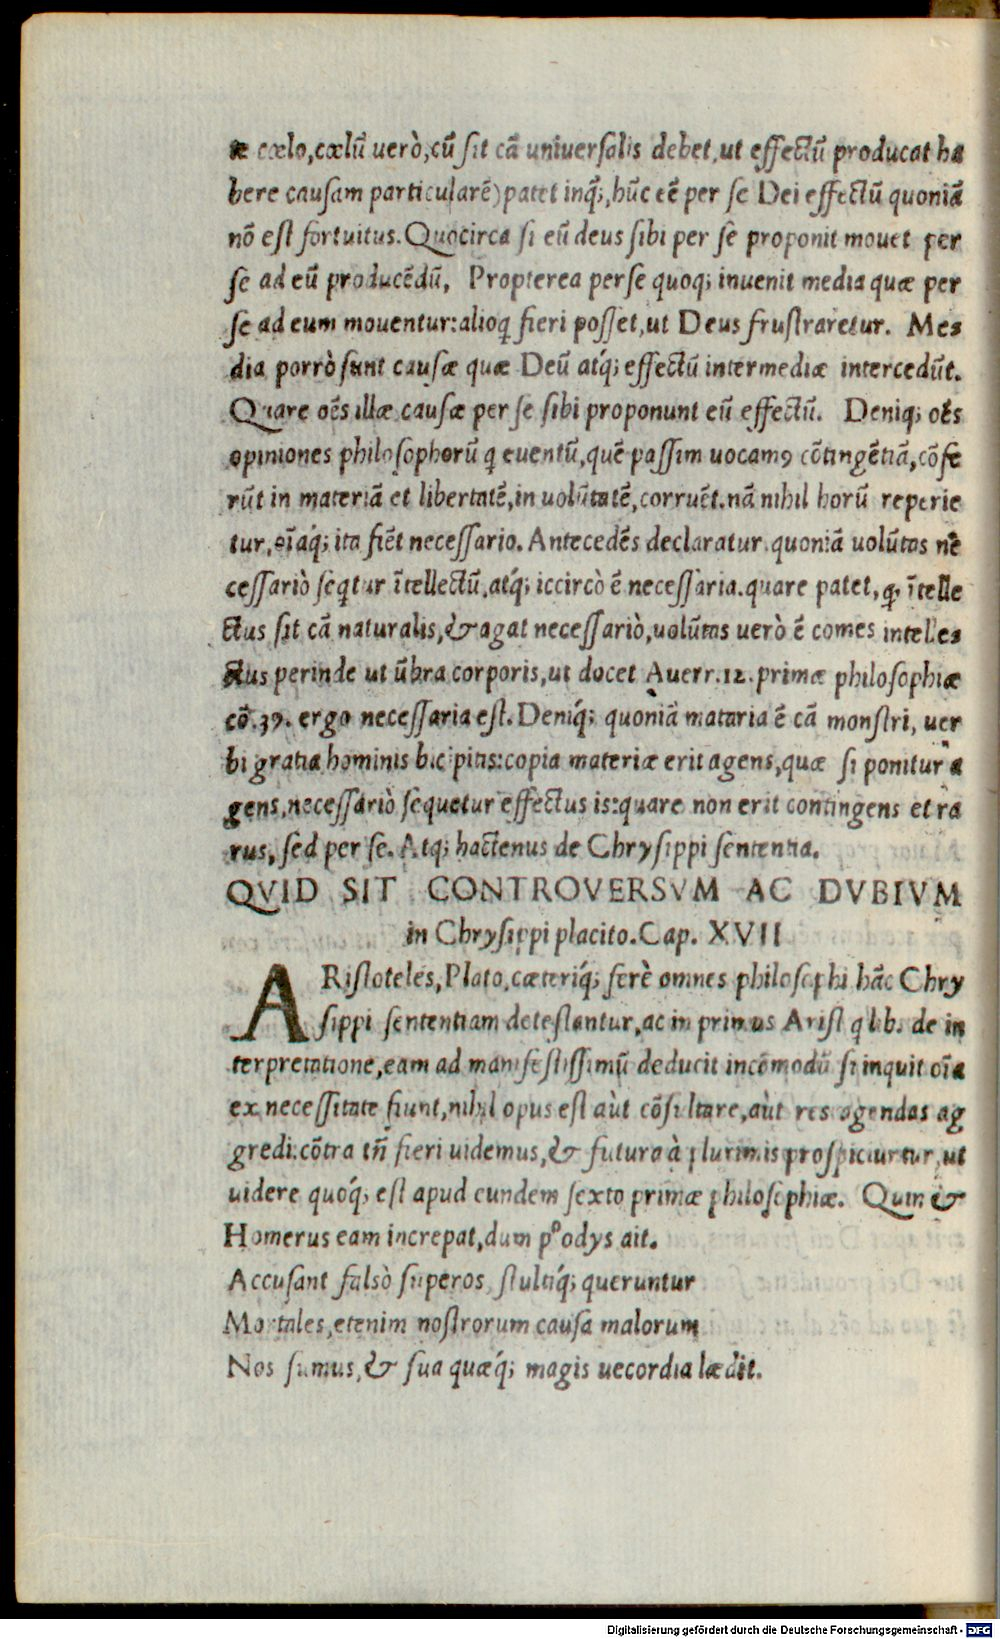 te cœlo, cœlũ uerò, cũ ſit cã uniuerſalis debet, ut effectũ producat ha
bere cauſam particularẽ) patet inq́;, hũc eẽ per ſe Dei effectũ quoniã
nõ eſt fortuitus. Quocirca ſi eũ deus ſibi per ſe proponit mouet per
ſe ad eũ producẽdũ, Propterea per ſe quoq; inuenit media quæ per
ſe ad eum mouentur: alioq fieri poſſet, ut Deus fruſtraretur. Me-
dia porrò ſunt cauſæ quæ Deũ atq́; effectũ intermediæ intercedũt.
Quare oẽs illæ cauſæ per ſe ſibi proponunt eũ effectũ. Deniq; oẽs
opiniones philoſophorũ q euentũ, quẽ paſſim uocamꝰ cõtingẽtiã, cõfe
rũt in materiã et libertatẽ, in uolũtatẽ, corruẽt. nã nihil horũ reperie
tur, oĩaq́; ita fiẽt neceſſario. Antecedẽs declaratur. quoniã uolũtas ne
ceſſariò ſeqtur ĩtellectũ, atq́; iccircò ẽ neceſſaria. quare patet, ꝙ, ĩtelle
ctus ſit cã naturalis, & agat neceſſariò, uolũtas uerò ẽ comes intelle-
ctus perinde ut ũbra corporis, ut docet Auerr. 12. primæ philoſophiæ
cõ. 39. ergo neceſſaria eſt. Deniq́; quoniã mataria ẽ cã monſtri, uer
bi gratia hominis bicipitis: copia materiæ erit agens, quæ ſi ponitur a
gens, neceſſariò ſequetur effectus is: quare non erit contingens et ra
rus, ſed per ſe. Atq; hactenus de Chryſippi ſententia.
QVID SIT CONTROVERSVM AC DVBIVM
in Chryſippi placito. Cap. XVII
ARiſtoteles, Plato, cæteriq́; ferè omnes philoſophi hãc Chry
ſippi ſententiam deteſtantur, ac in primus Ariſt q lib. de in
terpretatione, eam ad manifeſtiſſimũ deducit incõmodũ ſi inquit oĩa
ex neceſſitate fiunt, nihil opus eſt aùt cõſultare, aùt res agendas ag
gredi: cõtra tñ fieri uidemus, & futura à plurimis proſpiciuntur, ut
uidere quoq́; eſt apud eundem ſexto primæ philoſophiæ. Quin &
Homerus eam increpat, dum pº odys ait.
Accuſant falsò ſuperos, ſtultiq́; queruntur
Mortales, etenim noſtrorum cauſa malorum
Nos ſumus, & ſua quæq́; magis uecordia lædit.
Digitalisierung gefördert durch die Deutsche Forschungsgemeinschaft - DFG